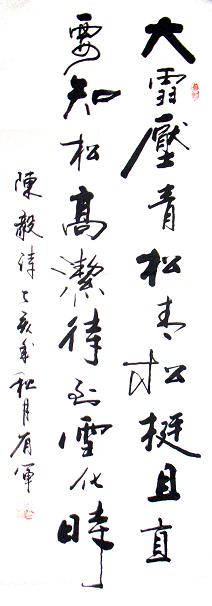 大雪壓青松青松挺且直
要知松高潔待到雪化時
陳毅詩乙亥年秋月有軍